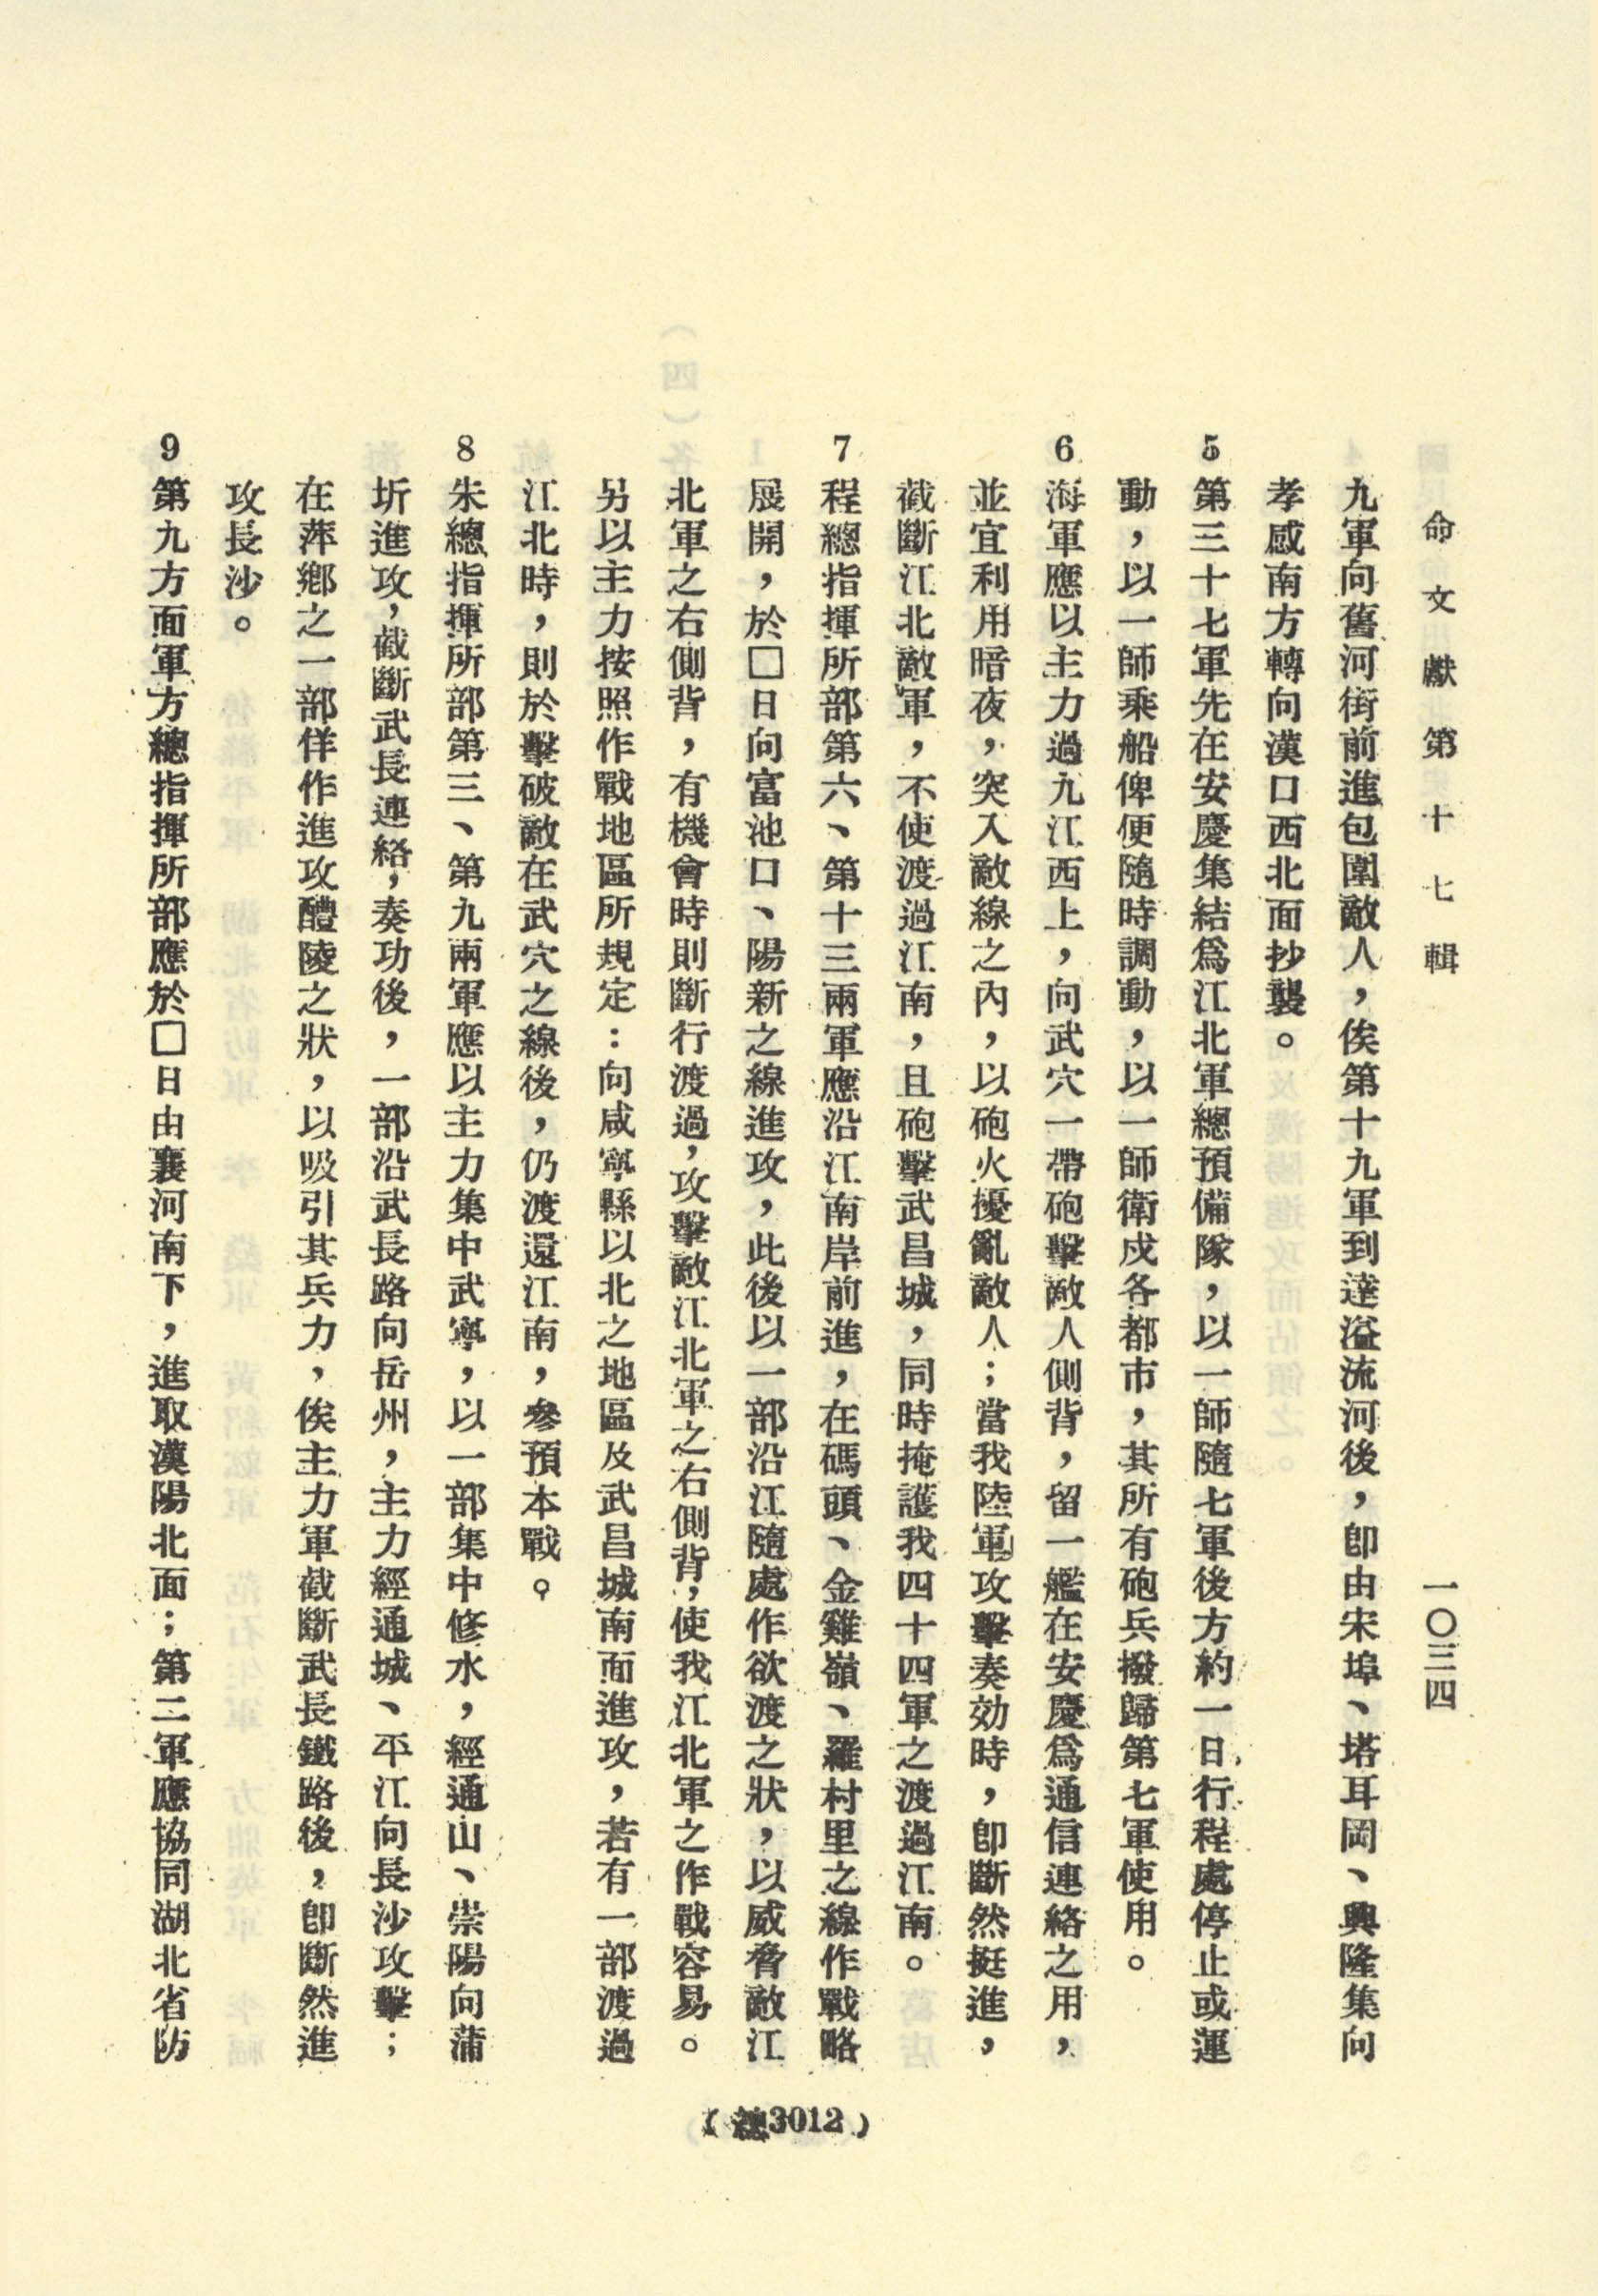 命文獻第十七輯
一〇三四
九軍向舊河街前進包圍敵人，俟第十九軍到達溢流河後，卽由宋埠、塔耳岡、興隆集向
孝感南方轉向漢口西北面抄襲。
5 第三十七軍先在安慶集結爲江北軍總預備隊，以一師隨七軍後方約一日行程處停止或運
動，以一師乘船俾便隨時調動，以一師衛戍各都市，其所有砲兵撥歸第七軍使用。
6 海軍應以主力過九江西上，向武穴一帶砲擊敵人側背，留一艦在安慶爲通信連絡之用，
並宜利用暗夜，突入敵線之內，以砲火擾亂敵人；當我陸軍攻擊奏効時，卽斷然挺進，
截斷江北敵軍，不使渡過江南，且砲擊武昌城，同時掩護我四十四軍之渡過江南。
7 程總指揮所部第六、第十三兩軍應沿江南岸前進，在碼頭、金雞嶺、羅村里之線作戰略
展開，於□日向富池口、陽新之線進攻，此後以一部沿江隨處作欲渡之狀，以威脅敵江
北軍之右側背，有機會時則斷行渡過，攻擊敵江北軍之右側背，使我江北軍之作戰容易。
另以主力按照作戰地區所規定：向咸寧縣以北之地區及武昌城南面進攻，若有一部渡過
江北時，則於擊破敵在武穴之線後，仍渡還江南，參預本戰。
8 朱總指揮所部第三、第九兩軍應以主力集中武寧，以一部集中修水，經通山、崇陽向蒲
圻進攻，截斷武長連絡，奏功後，一部沿武長路向岳州，主力經通城、平江向長沙攻擊；
在萍鄉之一部佯作進攻醴陵之狀，以吸引其兵力，俟主力軍截斷武長鐵路後，卽斷然進
攻長沙。
9 第九方面軍方總指揮所部應於□日由襄河南下，進取漢陽北面；第二軍應協同湖北省防
（總3012）